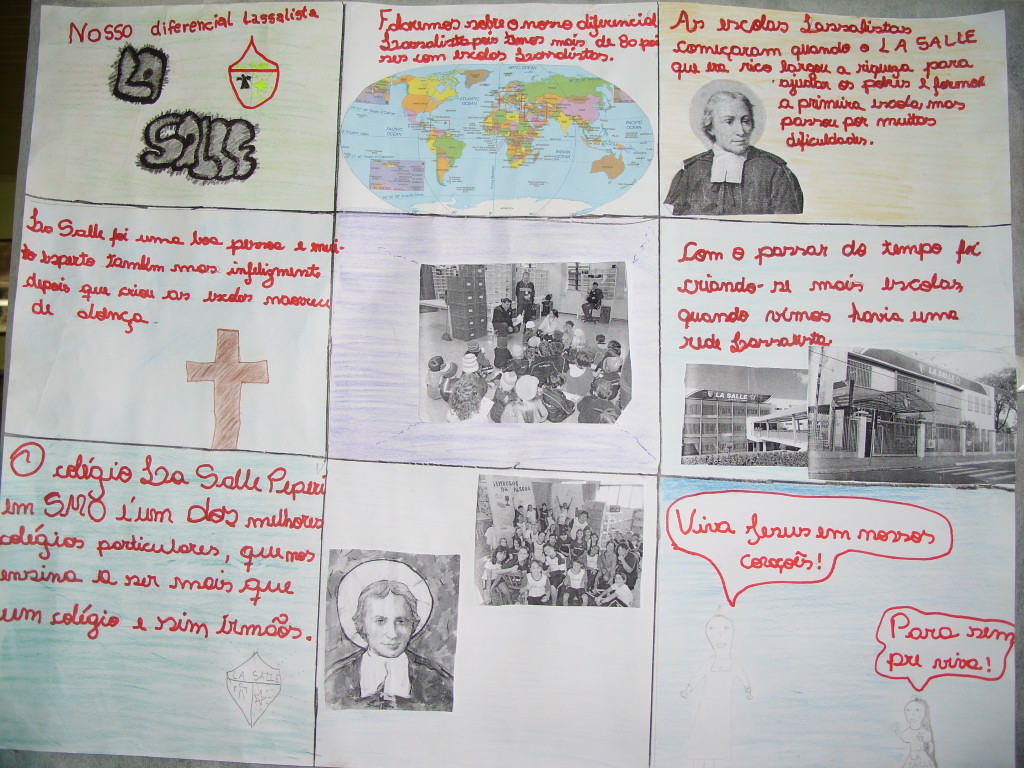 Nosso diferencial Lassalista
LA
SALLE
Falaremos sobre o nosso diferencial
Lassalista pois temos mais de 80 paí
ses com escolas Lassalistas.
ARCTIC OCEAN
As escolas Lassalistas
começaram quando o LA SALLE
que era rico largou a riqueza para
ajudar os pobres e formou
a primeira escola, mas
passou por muitas
dificuldades.
La Salle foi uma boa pessoa e mui-
to esperto também mas infelizmente
depois que criou as escolas morreu
de doença.
Com o passar do tempo foi
criando-se mais escolas,
quando vimos havia uma
rede Lassalista
LA SALLE
LA SALLE
O colégio La Salle Peperi
em SMO é um dos melhores
colégios particulares, que nos
ensina a ser mais que
um colégio e sim irmãos.
LA SALLE
Viva Jesus em nossos
coraçoês!
Para sem
pre viva!